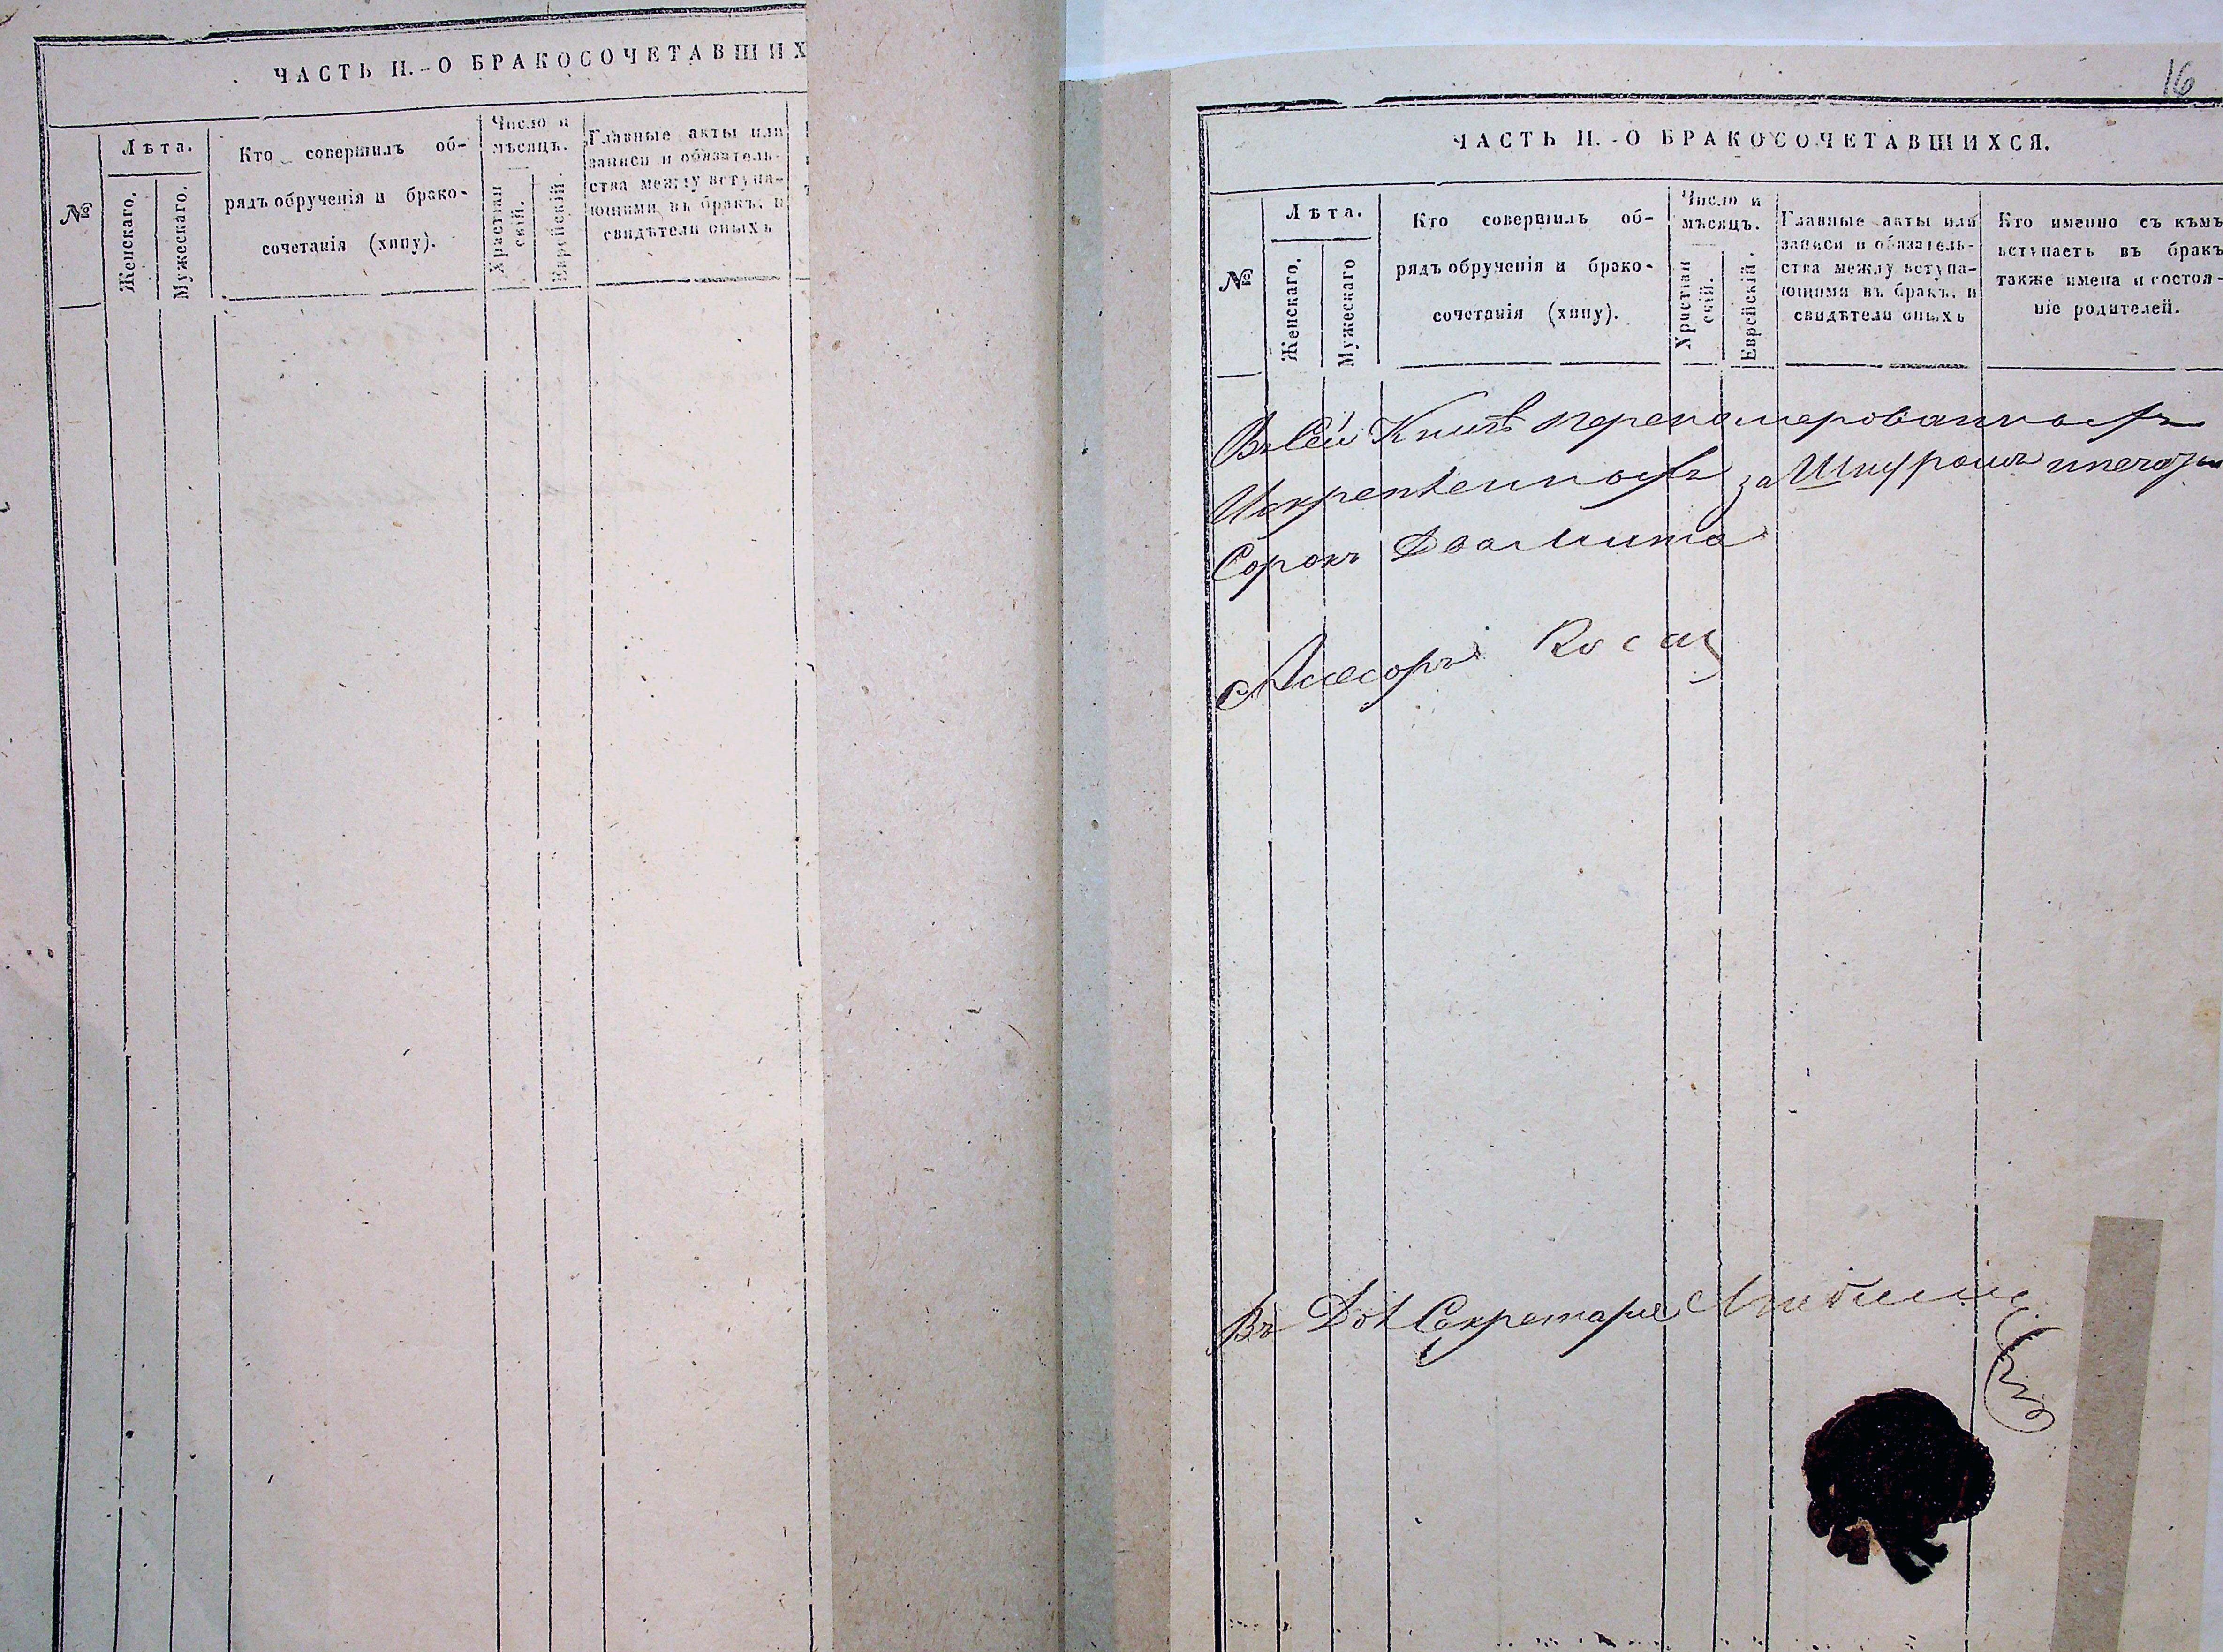 ЧАСТЬ II.-О БРАКОСОЧЕТАВШИХ
№
Лѣта.
Женскаго.
Мужескаго.
Кто совершилъ об-
рядъ обрученія и брако-
сочетанія (хипу).
Число и
мѣсяцъ.
Христіан
скій.
Еврейскій.
Главные акты или
записи и обязатель-
ства между вступа-
ющими въ бракъ, и
свидѣтели оныхъ
16
ЧАСТЬ II.-О БРАКОСОЧЕТАВШИХСЯ.
№
Лѣта.
Женскаго.
Мужескаго
Кто совершилъ об-
рядъ обрученія и брако-
сочетанія (хипу).
Число и
мѣсяцъ.
Христіан
скій.
Еврейскій.
Главные акты или
записи и обязатель-
ства между вступа-
ющими въ бракъ, и
свидѣтели оныхъ
Кто именно съ кѣмъ
вступаетъ въ бракъ
также имена и состоя-
ніе родителей.
Въ Сей Книгѣ перенамерованныхъ
за Шнуромъ
Сорокъ Два листа
Въ Секретаря